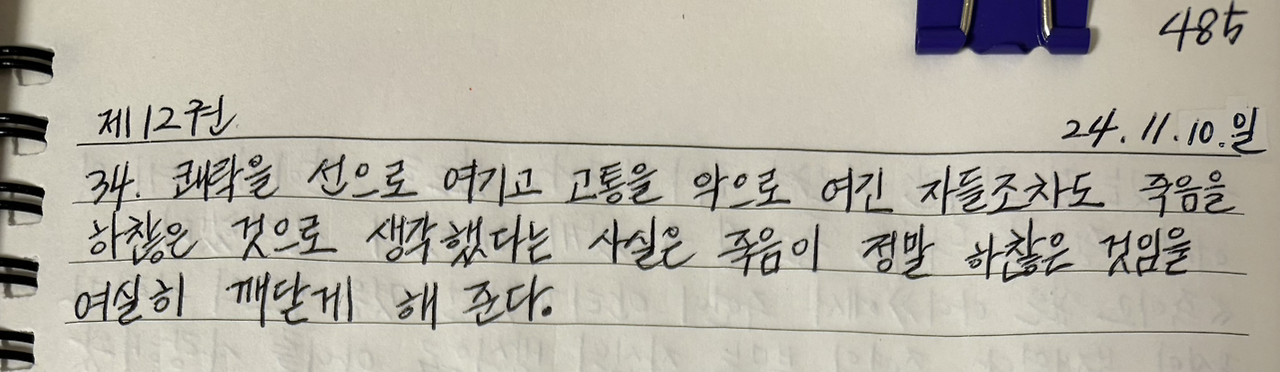 485
제12권
24.11.10.일
34. 쾌락을 선으로 여기고 고통을 악으로 여긴 자들조차도 죽음을
하찮은 것으로 생각했다는 사실은 죽음이 정말 하찮은 것임을
여실히 깨닫게 해 준다.